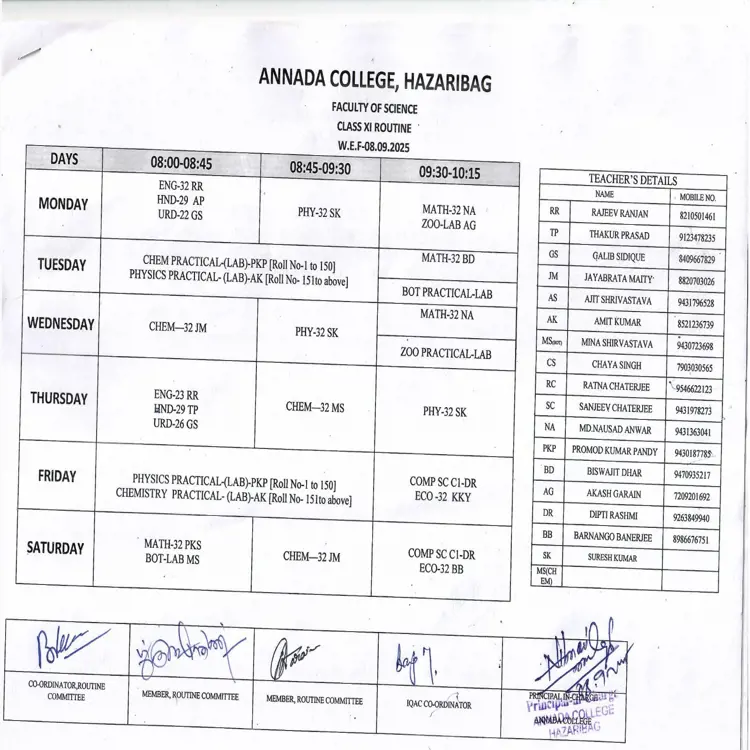 ANNADA COLLEGE, HAZARIBAG
FACULTY OF SCIENCE
CLASS XI ROUTINE
W.E.F-08.09.2025
DAYS 08:00-08:45 08:45-09:30 09:30-10:15
MONDAY
ENG-32 RR
HND-29 AP
URD-22 GS
PHY-32 SK
MATH-32 NA
ZOO-LAB AG
TUESDAY
CHEM PRACTICAL-(LAB)-PKP [Roll No-1 to 150]
PHYSICS PRACTICAL- (LAB)-AK [Roll No- 151to above]
MATH-32 BD
BOT PRACTICAL-LAB
WEDNESDAY
CHEM—32 JM
PHY-32 SK
MATH-32 NA
ZOO PRACTICAL-LAB
THURSDAY
ENG-23 RR
HND-29 TP
URD-26 GS
CHEM—32 MS
PHY-32 SK
FRIDAY
PHYSICS PRACTICAL-(LAB)-PKP [Roll No-1 to 150]
CHEMISTRY PRACTICAL- (LAB)-AK [Roll No- 151to above]
COMP SC C1-DR
ECO -32 KKY
SATURDAY
MATH-32 PKS
BOT-LAB MS
CHEM—32 JM
COMP SC C1-DR
ECO-32 BB
TEACHER'S DETAILS
NAME MOBILE NO.
RR RAJEEV RANJAN 8210501461
TP THAKUR PRASAD 9123478235
GS GALIB SIDIQUE 8409667829
JM JAYABRATA MAITY 8820703026
AS AJIT SHRIVASTAVA 9431796528
AK AMIT KUMAR 8521236739
MS(BOT) MINA SHIRVASTAVA 9430723698
CS CHAYA SINGH 7903030565
RC RATNA CHATERJEE 9546622123
SC SANJEEV CHATERJEE 9431978273
NA MD.NAUSAD ANWAR 9431363041
PKP PROMOD KUMAR PANDY 9430187785
BD BISWAJIT DHAR 9470935217
AG AKASH GARAIN 7209201692
DR DIPTI RASHMI 9263849940
BB BARNANGO BANERJEE 8986676751
SK SURESH KUMAR
MS(CH
EM)
CO-ORDINATOR,ROUTINE
COMMITTEE
MEMBER, ROUTINE COMMITTEE
MEMBER, ROUTINE COMMITTEE
IQAC CO-ORDINATOR
PRINCIPAL IN-CHARGE
ANNADA COLLEGE
Principal-in-Charge
ANNADA COLLEGE
HAZARIBAG